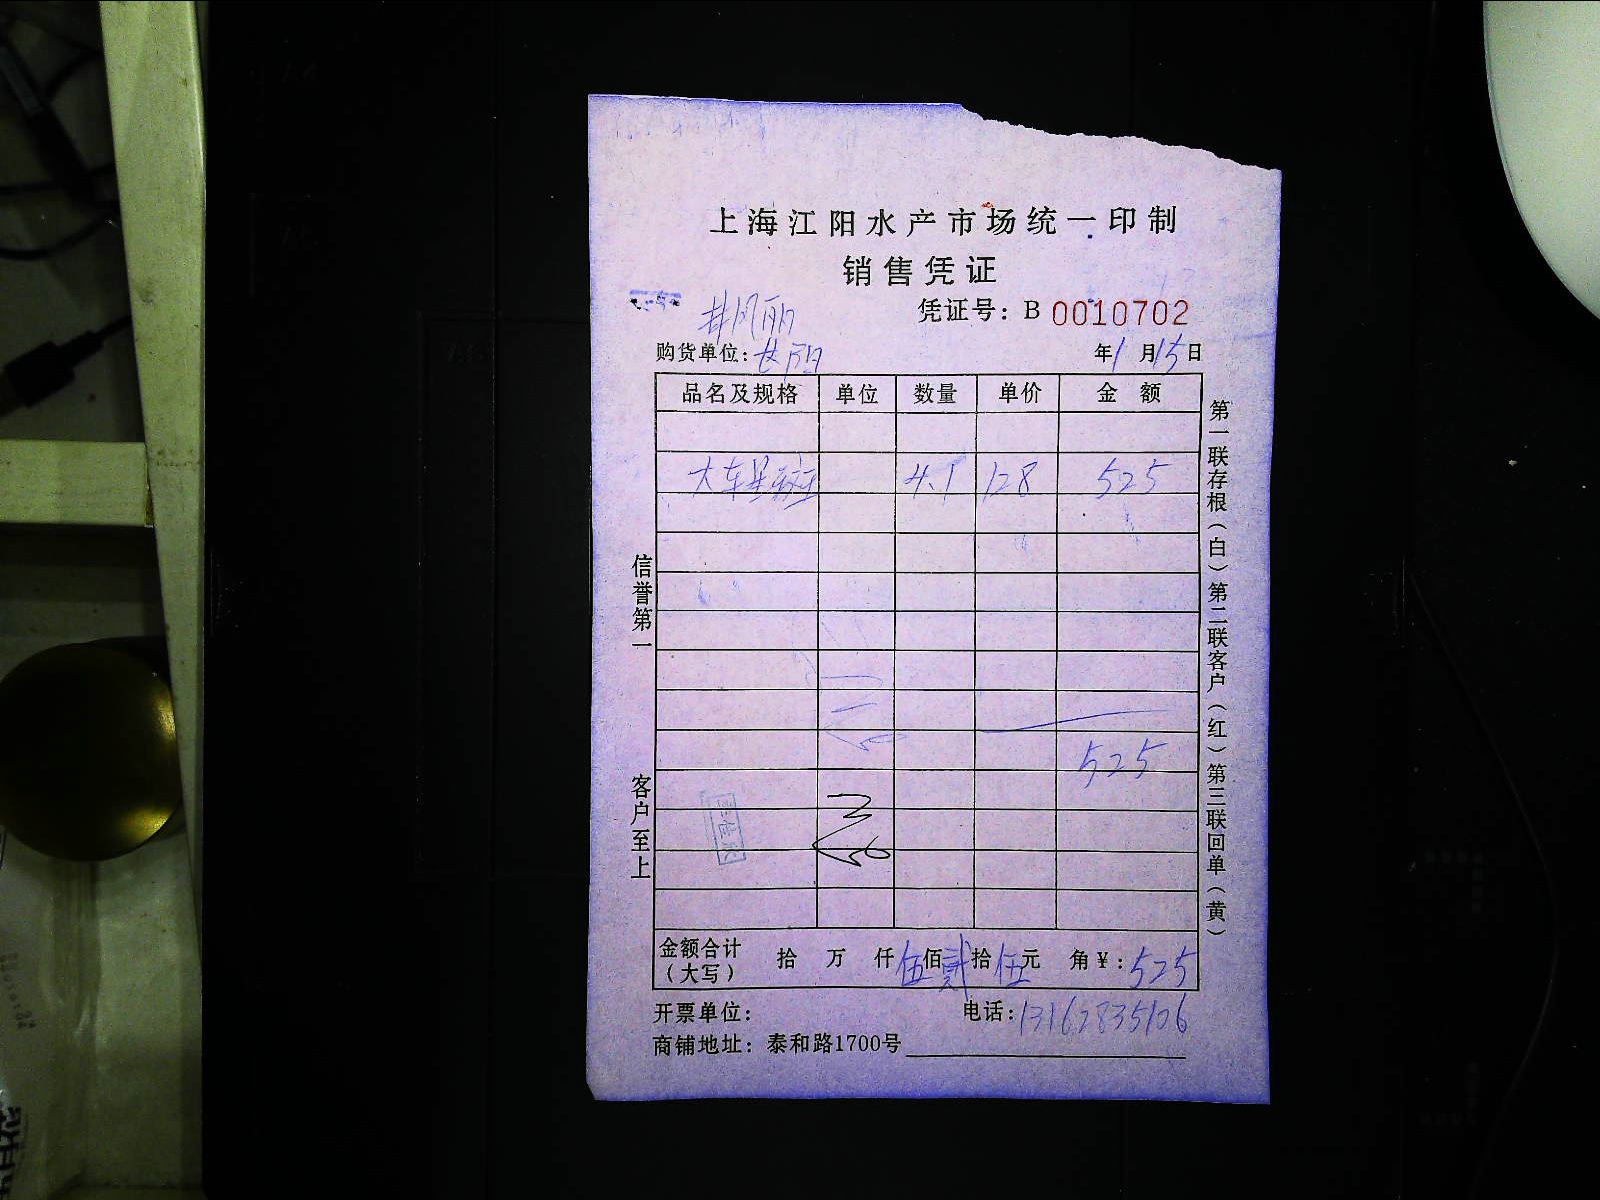 上海江阳水产市场统一印制
销售凭证
凭证号：B 0010702
购货单位：
年1月15日
品名及规格 单位 数量 单价 金额
大车星斑 4.1 128 525
525
金额合计（大写） 拾 万 仟 伍佰 贰拾 伍元 角 ¥：525
开票单位： 电话：13162835106
商铺地址：泰和路1700号
信誉第一
客户至上
第一联存根（白）第二联客户（红）第三联回单（黄）